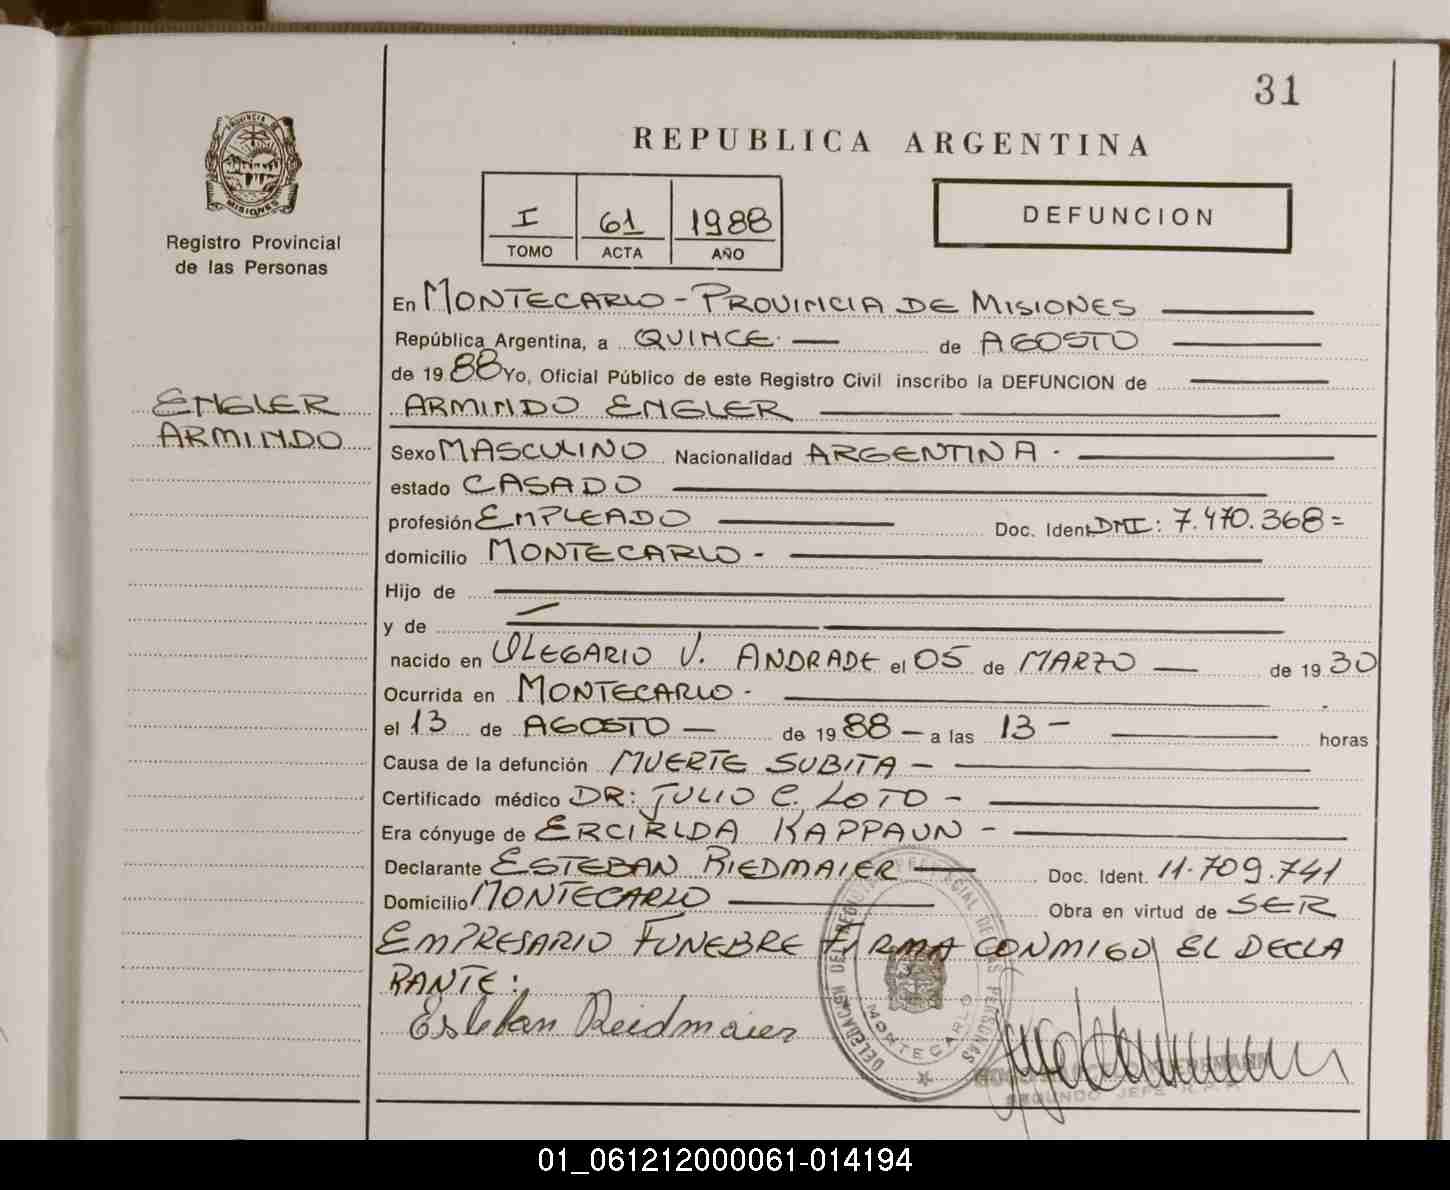 31
REPUBLICA ARGENTINA
PROVINCIA DE
MISIONES
Registro Provincial
de las Personas
I 61 1988
TOMO ACTA AÑO
DEFUNCION
En MONTECARLO - PROVINCIA DE MISIONES
República Argentina, a QUINCE de AGOSTO
de 1988 Yo, Oficial Público de este Registro Civil inscribo la DEFUNCION de
ENGLER
ARMINDO
ARMINDO ENGLER
Sexo MASCULINO Nacionalidad ARGENTINA.
estado CASADO
profesión EMPLEADO Doc. Ident. DNI: 7.470.368=
domicilio MONTECARLO -
Hijo de
y de
nacido en OLEGARIO V. ANDRADE el 05 de MARZO de 1930
Ocurrida en MONTECARLO.
el 13 de AGOSTO - de 1988 - a las 13 - horas
Causa de la defunción MUERTE SUBITA -
Certificado médico DR: JULIO C. LOTO -
Era cónyuge de ERCIRLDA KAPPAUN -
Declarante ESTEBAN RIEDMAIER Doc. Ident. 11.709.741
Domicilio MONTECARLO Obra en virtud de SER
EMPRESARIO FUNEBRE FIRMA CONMIGO EL DECLA
RANTE:
Esteban Reidmaier
DELEGACION DEL REGISTRO PROVINCIAL DE LAS PERSONAS
MONTECARLO
SEGUNDO JEFE R.P.P.
01_061212000061-014194